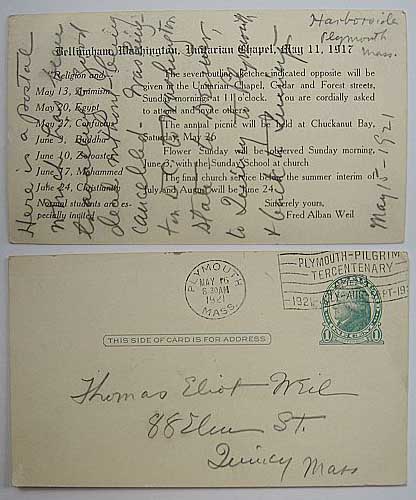 Harborside
Plymouth
Mass.
Bellingham, Washington, Unitarian Chapel, May 11, 1917
Religion and—
May 13, Animism
May 20, Egypt
May 27, Confucius
June 3, Buddha
June 10, Zoroaster
June 17, Mohammed
June 24, Christianity
Normal students are es-
pecially invited
The seven outline sketches indicated opposite will be
given in the Unitarian Chapel, Cedar and Forest streets,
Sunday mornings at 11 o'clock. You are cordially asked
to attend and invite others.
The annual picnic will be held at Chuckanut Bay,
Saturday, May 26
Flower Sunday will be observed Sunday morning,
June 3, with the Sunday School at church
The final church service before summer interim of
July and August will be June 24.
Sincerely yours,
Fred Alban Weil
Here is a postal
cancelled Washing-
to Quincy to Plymouth
& back to Quincy
May 15-1921
PLYMOUTH
MAY 16
6:30AM
1921
MASS.
PLYMOUTH-PILGRIM
TERCENTENARY
1921
THIS SIDE OF CARD IS FOR ADDRESS
1 1
Thomas Eliot Weil
88 Elm St.
Quincy
Mass